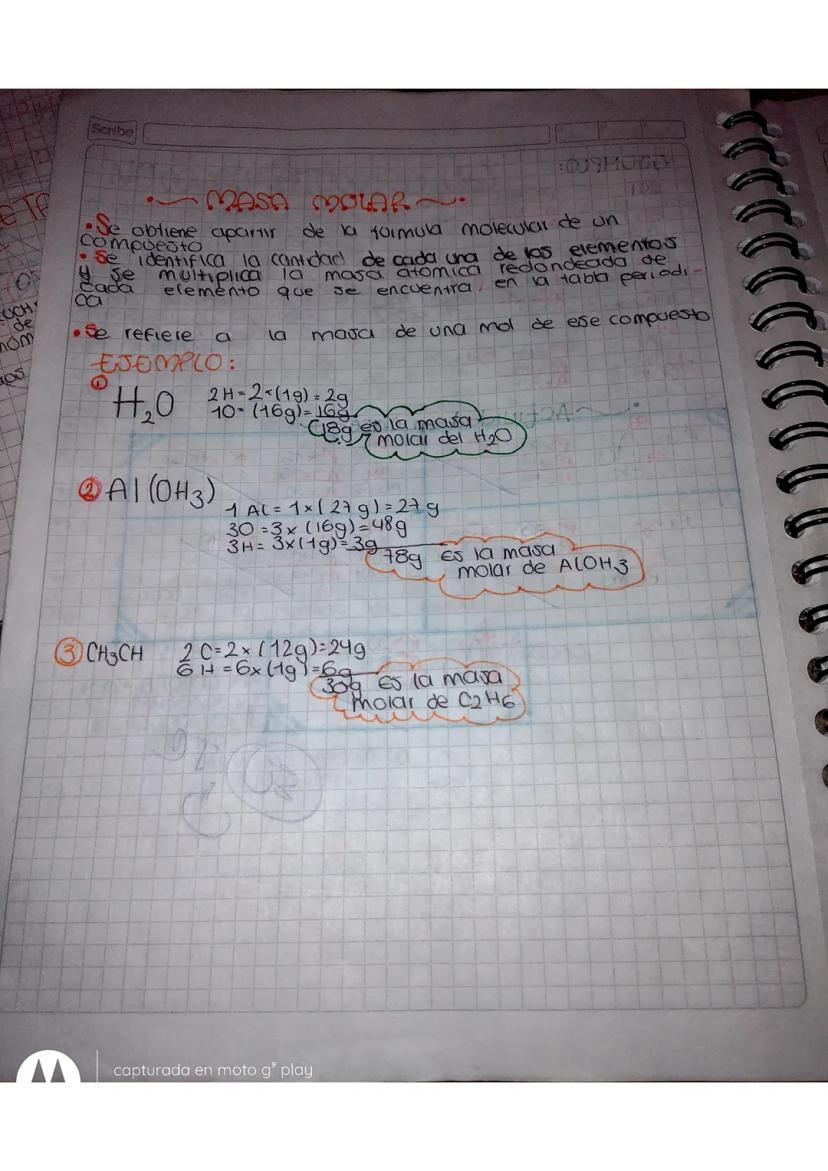 Scribe
MASA MOLAR
• Se obtiene apartir de la formula molecular de un
compuesto
• Se identifica la cantidad de cada una de los elementos
y se multiplica la masa atomica redondeada de
cada elemento que se encuentra, en la tabla periodi-
ca
• Se refiere a la masa de una mol de ese compuesto
EJEMPLO:
① H₂O 2H = 2×(1g) = 2g
1O = (16g) = 16g
18g es la masa
molar del H₂O
② Al(OH₃)
1 AL = 1×(27g) = 27g
3O = 3×(16g) = 48g
3H = 3×(1g) = 3g
78g Es la masa
molar de AlOH3
③ CH₃CH 2C = 2×(12g) = 24g
6H = 6×(1g) = 6g
30g Es la masa
molar de C2H6
capturada en moto g⁹ play